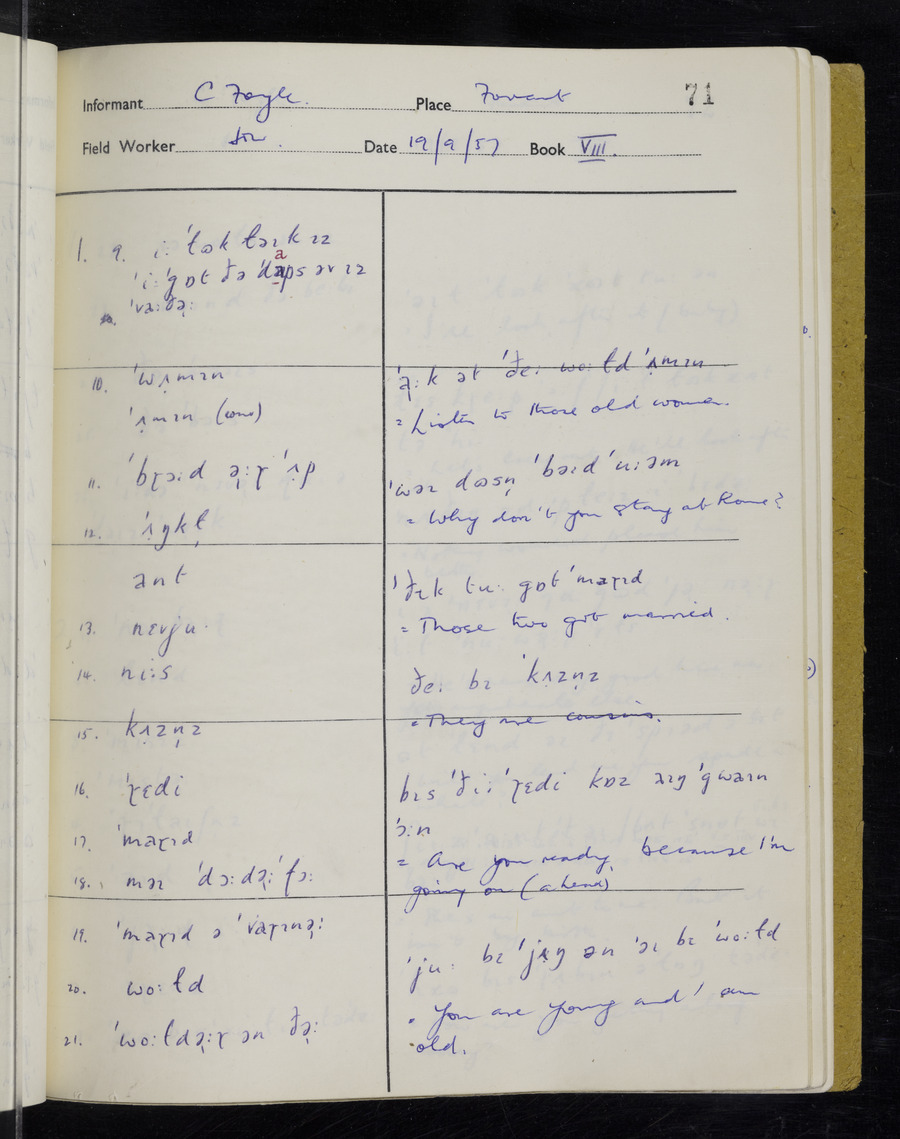 Informant C Foyle. Place Fovant 71
Field Worker Date 19/9/57 Book VIII.
1. 9. i: ˈtɒk təɪk ɪz
ˈi:ˈgɒt ðə ˈdaps əv ɪz
ˈva:ðə̣:
10. ˈwʌ̣mɪn
ˈʌ̣mɪn (cons)
11. ˈbɽɔ:d ə̣:ɽ ˈʌp
12. ˈʌ̣ŋkɫ̩
ant
13. nɛvju·
14. ni:s
15. kʌzn̩z
16. ˈɽɛdi
17. ˈmaɽɪd
18. məɪ ˈdɔ:də̣:ˈfɔ:
19. ˈmaɽɪd ə ˈvaɽɪnə̣:
20. wo:ɫd
21. ˈwo:ɫdə̣:ɽ ən ðə̣:
ət ˈðe: wo:ɫd ˈʌ̣mɪn
= Listen to those old women.
= Why don't you stay at home?
tu: gɒt ˈmaɽɪd
= Those two got married.
ðe: bɪ ˈkʌzn̩z
= They are cousins.
bɪs ˈði: ˈɽɛdi kɒz əɪŋ ˈgwəɪn
ˈɔ:n
= Are you ready, because I'm
going on (ahead)
ˈju: bɪ ˈjʌŋ ən ˈəɪ bɪ ˈwo:ɫd
= You are young and I am
old.